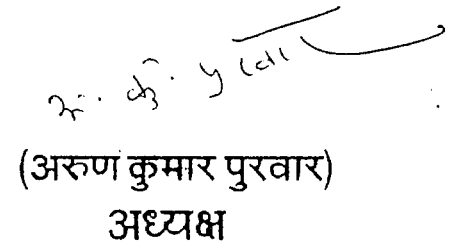 अ. कु. पुरवार
(अरुण कुमार पुरवार)
अध्यक्ष